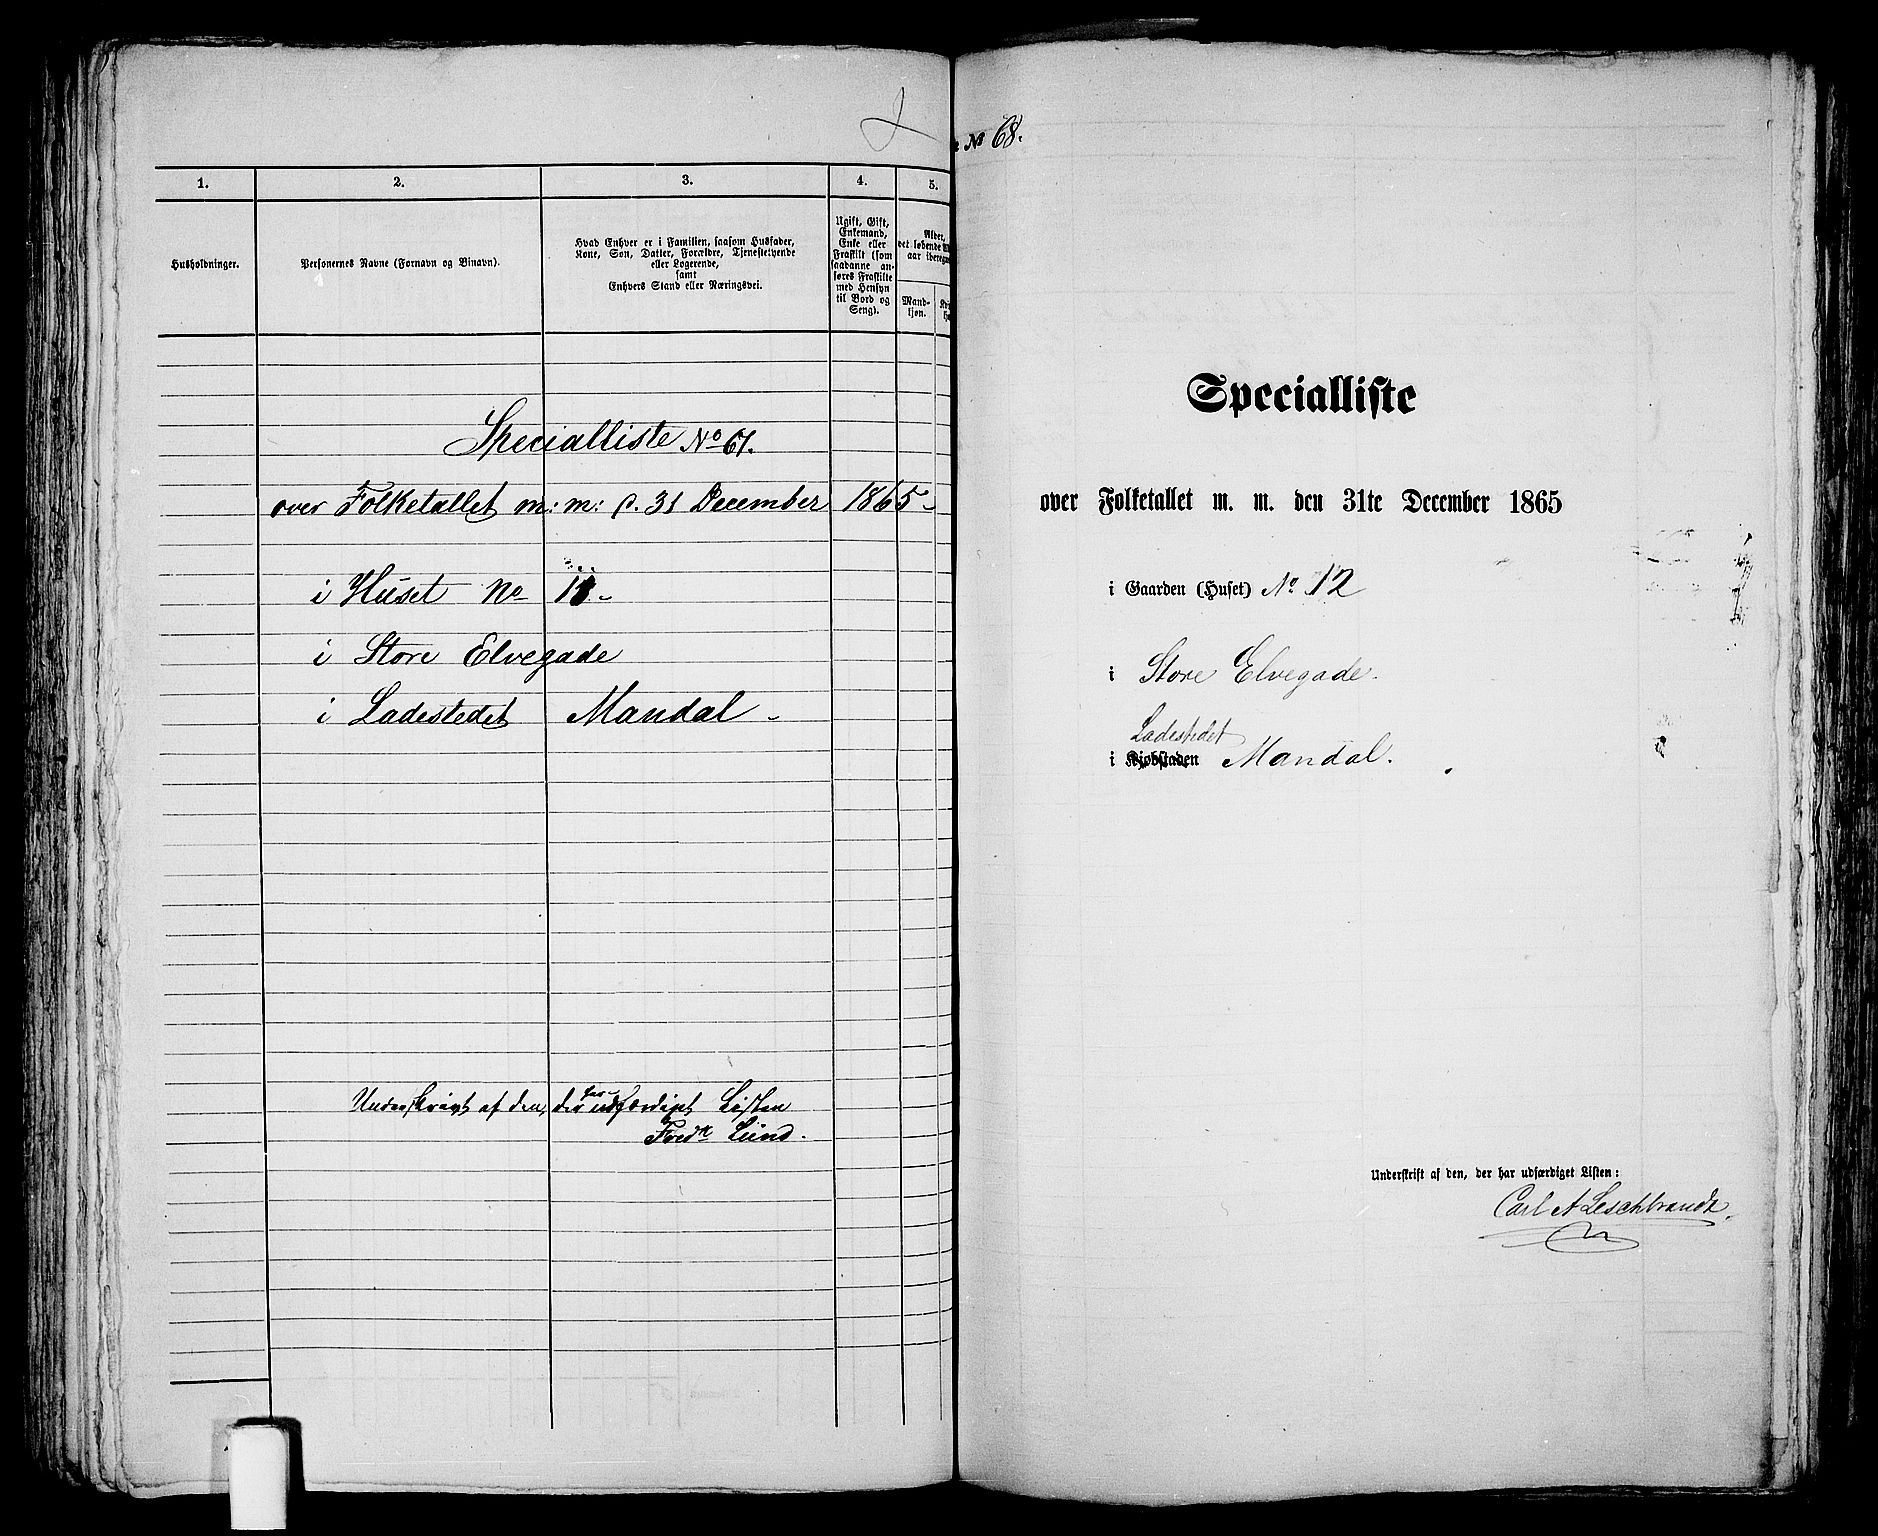 1.
2.
3.
4.
5.
Husholdninger.
Personernes Navne (Fornavn og Binavn).
Hvad Enhver er i Familien, saasom Husfader,
Kone, Søn, Datter, Forældre, Tjenestetyende
eller Logerende,
samt
Enhvers Stand eller Næringsvei.
Ugift, Gift,
Enkemand,
Enke eller
Fraskilt (som
saadanne an-
føres Fraskilte
med Hensyn
til Bord og
Seng).
Alder,
det løbende
aar iberegn
Mand-
kjøn.
Specialliste No 67.
over Folketallet m: m: d. 31 December 1865
i Huset No 11
i Store Elvegade
i Ladestedet Mandal
Underskrivt af den, der har udfærdiget Listen
Fredk Lund.
No 68.
Specialliste
over Folketallet m. m. den 31te December 1865
i Gaarden (Huset) No 12
i Store Elvegade.
Ladestedet
i Kjøbstaden Mandal.
Underskrift af den, der har udfærdiget Listen:
Carl A Leschbrandt.